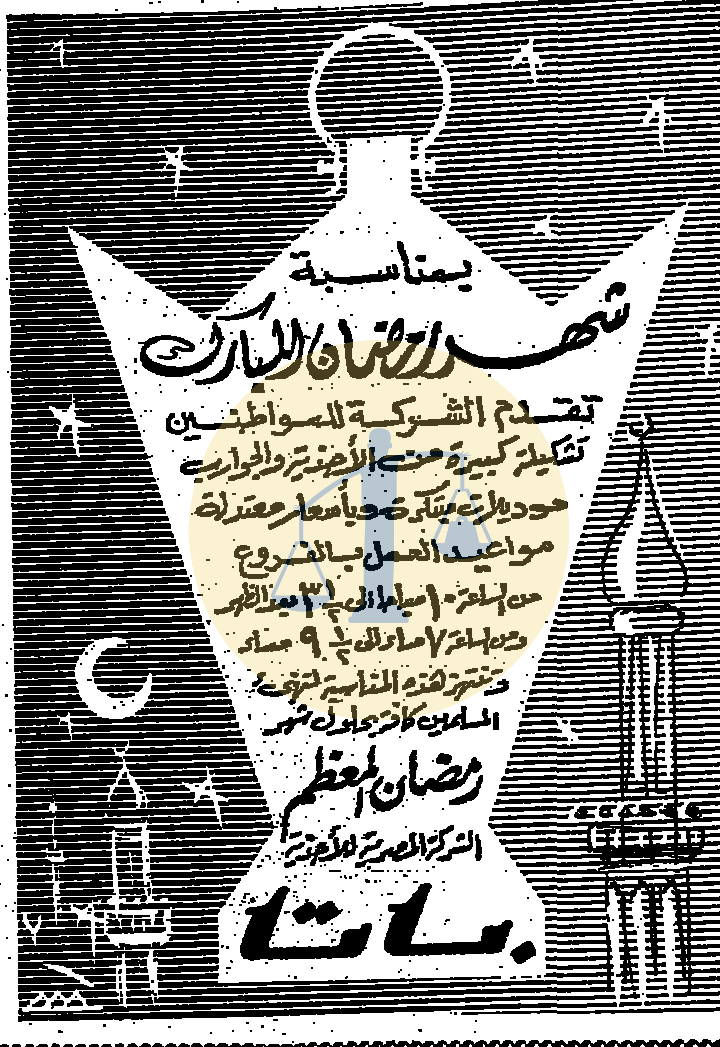 بمناسبة
شهر رمضان المبارك
تقدم الشركة للمواطنين
تشكيلة كبيرة من الأحذية والجوارب
موديلات مبتكرة وبأسعار معتدلة
مواعيد العمل بالفروع
من الساعة ١٠ صباحا الى ٣ ١/٢ بعد الظهر
ومن الساعة ٧ مساء الى ٩ ١/٢ مساء
وتنتهز هذه المناسبة لتهنئ
المسلمين كافة بحلول شهر
رمضان المعظم
الشركة المصرية للأحذية
باتا